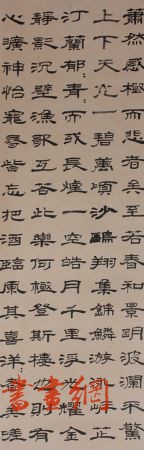 蕭然感極而悲者矣至若春和景明波瀾不驚
上下天光一碧萬頃沙鷗翔集錦鱗游泳岸芷
汀蘭郁〻青〻而或長煙一空皓月千里浮光耀金
靜影沉璧漁歌互答此樂何極登斯樓也則有
心曠神怡寵辱皆忘把酒臨風其喜洋〻者矣嗟
書畫網